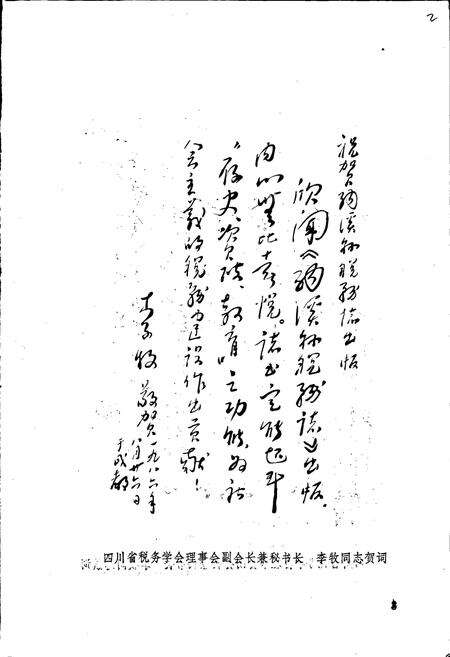 2
祝贺溪县税务志出版
欣闻《溪县税务志》出版,
内心無比喜悦。志书定能起到
“存史、资政、教育”之功能,为社
会主義的税务建设作出贡献!
李牧 敬贺 一九八六年
八月廿六日
于成都
四川省税务学会理事会副会长兼秘书长 李牧同志贺词